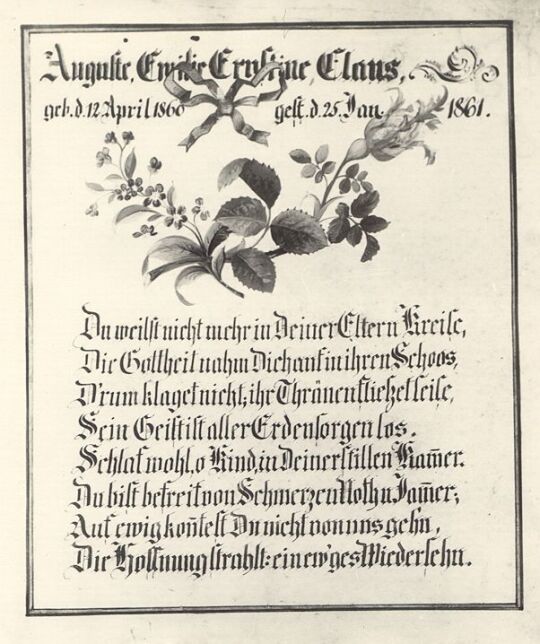 Auguste, Emilie Ernstine, Claus,
geb. d. 12. April 1860 gest. d. 25. Jan. 1861.
Du weilst nicht mehr in Deiner Eltern Kreise,
Die Gottheit nahm Dich auf in ihren Schoos,
D'rum klaget nicht, ihr Thränen fließet leise,
Sein Geist ist aller Erdensorgen los.
Schlaf wohl, o Kind, in Deiner stillen Kam̄er.
Du bist befreit von Schmerzen Noth u Jam̄er;
Auf ewig kon̄test Du nicht von uns gehn,
Die Hoffnung strahlt: ein ew'ges Wiedersehn.